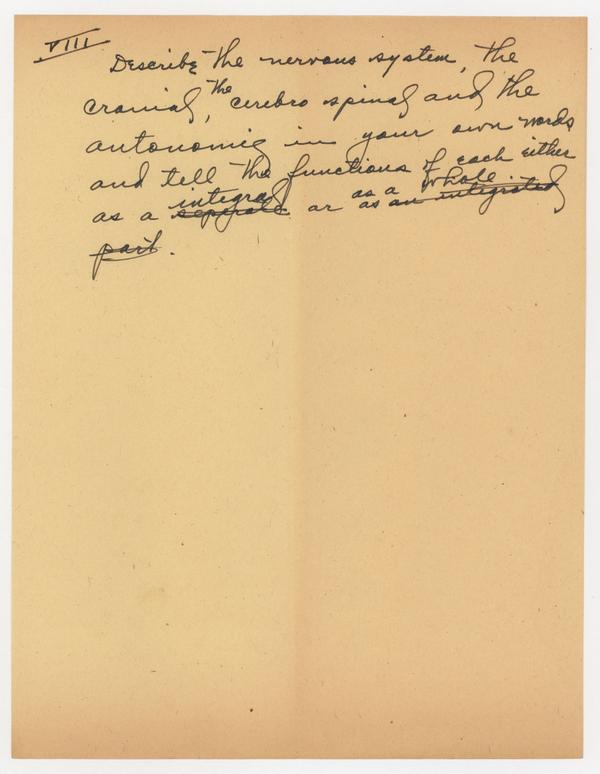 VIII
Describe the nervous system, the
cranial, the cerebro spinal and the
autonomic in your own words
and tell the functions of each either
as a separate integral or as an integrated as a whole.
part.